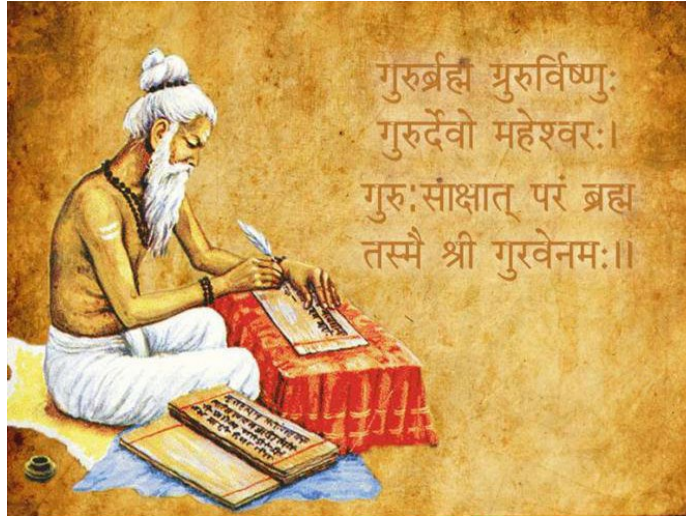 गुरुर्ब्रह्म ग्रुरुर्विष्णु:
गुरुर्देवो महेश्वर:।
गुरु:साक्षात् परं ब्रह्म
तस्मै श्री गुरवेनम:।।